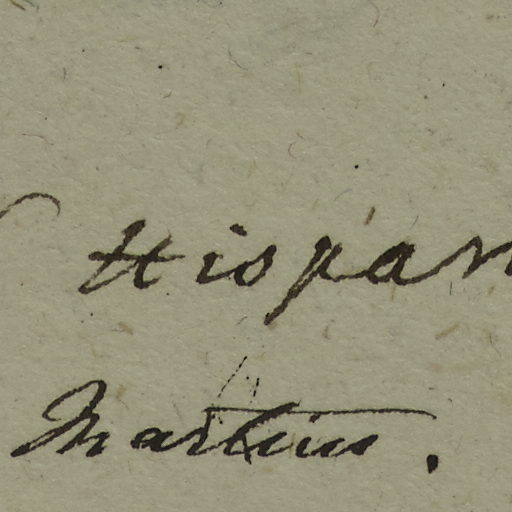 Hispan
Martius.